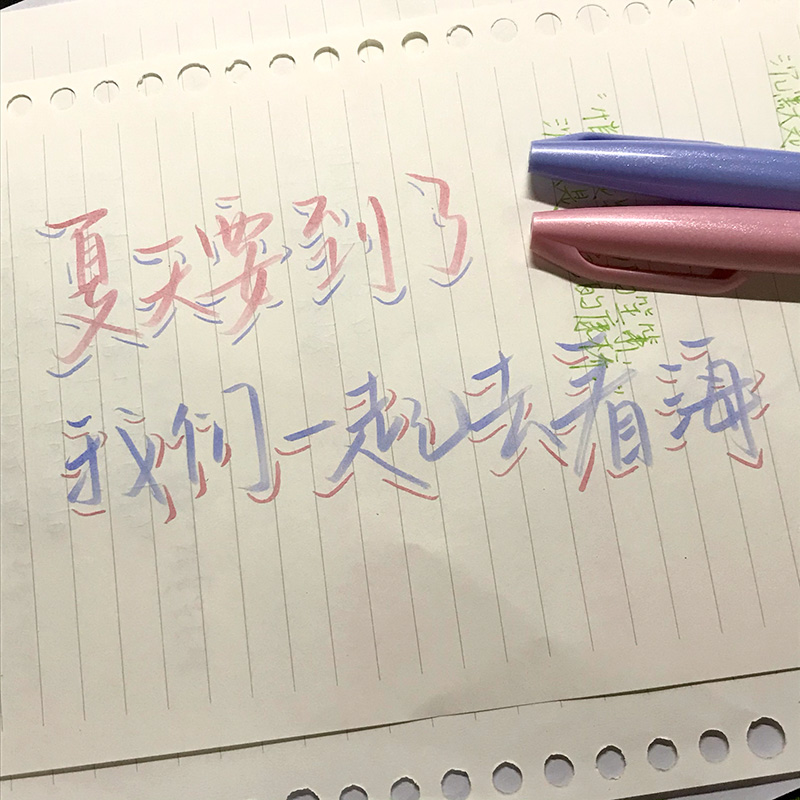 夏天要到了
我们一起去看海